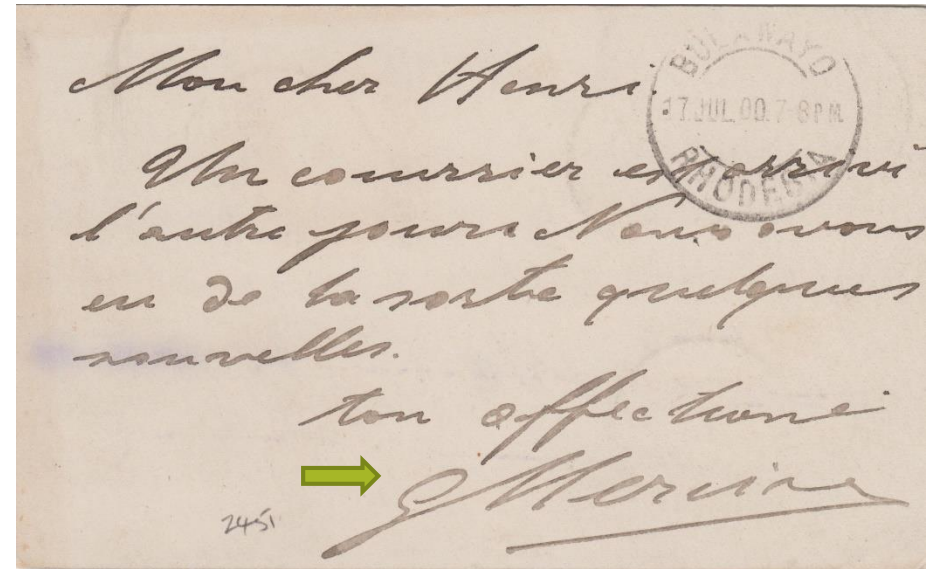 Mon cher Henri.
BULAWAYO
17 JUL 00. 7-8 PM
RHODESIA
Un courrier est arrivé
l'autre jours Nous avons
eu de la sorte quelques
nouvelles.
ton affectioné
G Mercier
2451